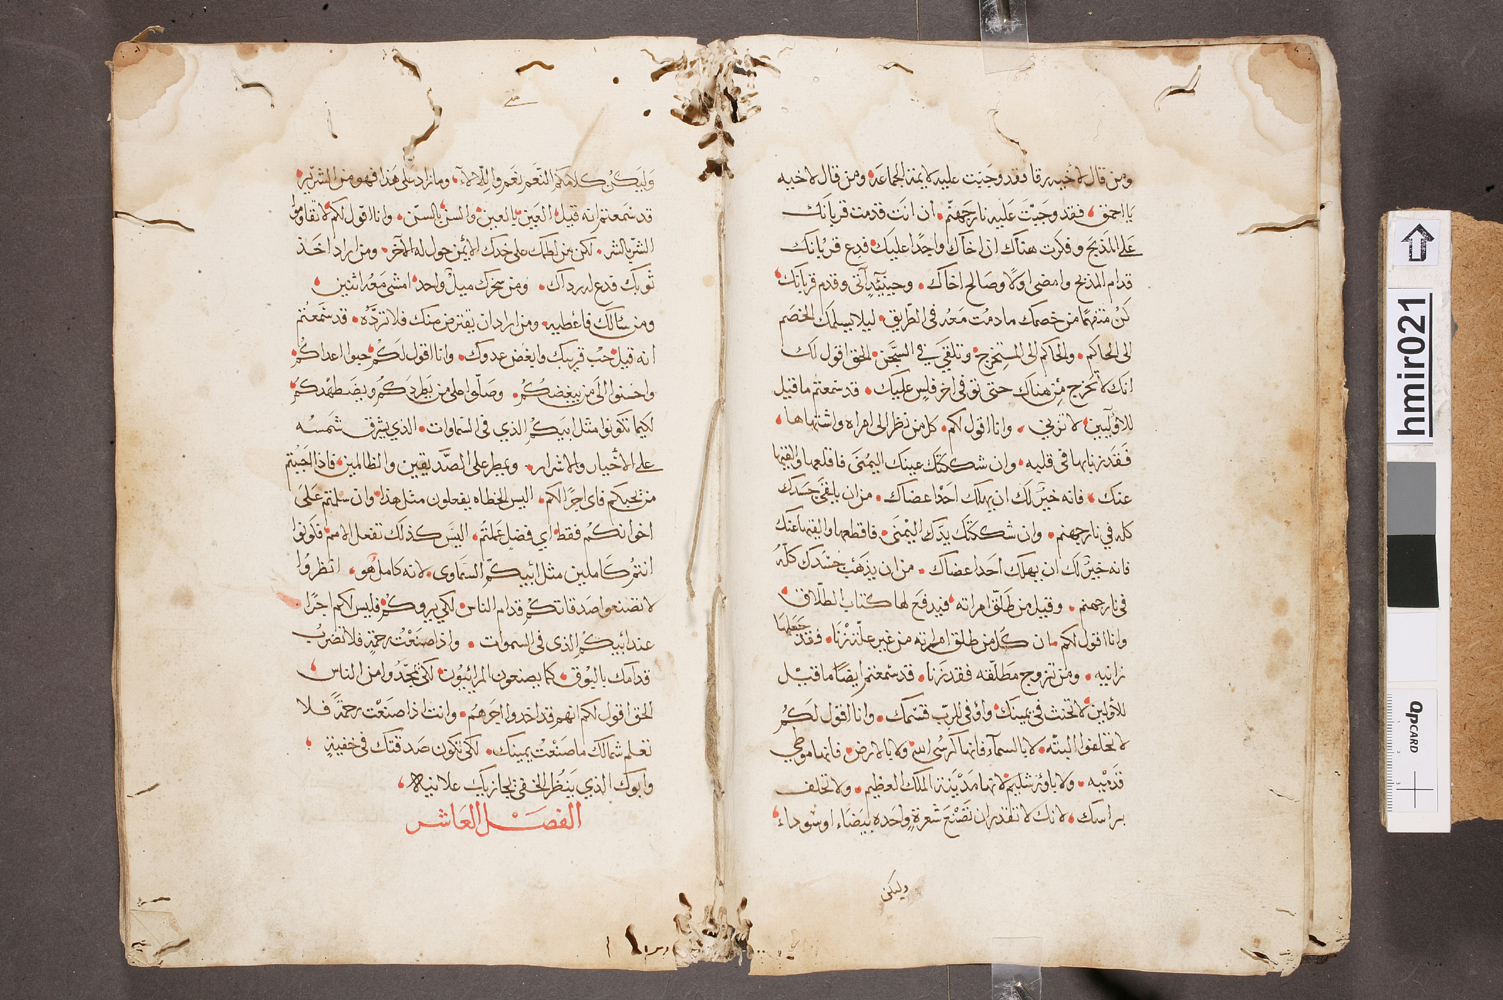 ومن قال لأخيه رقا فقد وجبت عليه لايمة الجماعة ومن قال لاخيه
يا احمق فقد وجبت عليه نار جهنم ان انت قدمت قربانك
على المذبح وفكرت هناك ان اخاك واجدا عليك فدع قربانك
قدام المذبح وامضي اولا وصالح اخاك وحينيذ آتي وقدم قربانك
كن متفهما من خصمك ما دمت معه في الطريق ليلا يسلمك الخصم
الى الحاكم والحاكم الى المستخرج وتلقى في السجن الحق اقول لك
انك لا تخرج من هناك حتى توفي اخر فلس عليك قد سمعتم ما قيل
للاولين لا تزني وانا اقول لكم كل من نظر الى امراه واشتهاها
فقد زنا بها في قلبه وان شككتك عينك اليمنى فاقلعها والقيها
عنك فانه خير لك ان يهلك احد اعضاك من ان يلقى جسدك
كله في نار جهنم وان شككتك يدك اليمنى فاقطعها والقيها عنك
فانه خير لك ان يهلك أحد اعضاك من ان يذهب جسدك كله
في نار جهنم وقيل من طلق امراته فيدفع لها كتاب الطلاق
وانا اقول لكم ان كل من طلق امراته من غير علة زنا فقد جعلها
زانيه ومن تزوج مطلقه فقد زنا قد سمعتم ايضا ما قيل
للأولين لا تحنث في يمينك واوف للرب قسمك وانا اقول لكم
لا تحلفوا البته لا بالسما فانها كرسي الله ولا بالارض فانها موطي
قدميه ولا باورشليم لانها مدينة الملك العظيم ولا تحلف
براسك لانك لا تقدر ان تصنع شعرة واحده بيضاء او سوداء
وليكن
وليكن كلامكم النعم نعم والا لا وما زاد على هذا فهو من الشرير
قد سمعتم انه قيل العين بالعين والسن بالسن وانا اقول لكم لا تقاوموا
الشر بالشر لكن من لطمك على خدك الايمن حول له الآخر ومن اراد اخذ
ثوبك فدع له رداك ومن سخرك ميل واحد امشي معه اثنين
ومن سالك فاعطيه ومن اراد ان يقترض منك فلا تردّه قد سمعتم
انه قيل حب قريبك وابغض عدوك وانا اقول لكم حبوا اعداكم
واحسنوا الى من يبغضكم وصلوا على من يطردكم ويضطهدكم
لكيما تكونوا مثل ابيكم الذي في السماوات الذي يشرق شمسه
على الأخيار والاشرار ويمطر على الصديقين والظالمين فاذا احببتم
من يحبكم فاي اجر لكم اليس الخطاه يفعلون مثل هذا وان سلمتم على
اخوانكم فقط اي فضل عملتم اليس كذلك تفعل الامم فكونوا
انتم كاملين مثل ابيكم السماوى لانه كامل هو انظروا
لا تصنعوا صدقاتكم قدام الناس لكي يروكم فليس لكم اجرا
عند ابيكم الذى في السموات واذا صنعت رحمة فلا تضرب
قدامك بالبوق كما يصنعون المرائيون لكي يمجدوا من الناس
الحق اقول لكم انهم قد اخدوا اجرهم وانت اذا صنعت رحمة فلا
تعلم شمالك ما صنعت يمينك لكي تكون صدقتك في خفية
وابوك الذي ينظر الخفي يجازيك علانية
الفصل العاشر
hmir021
QpCARD